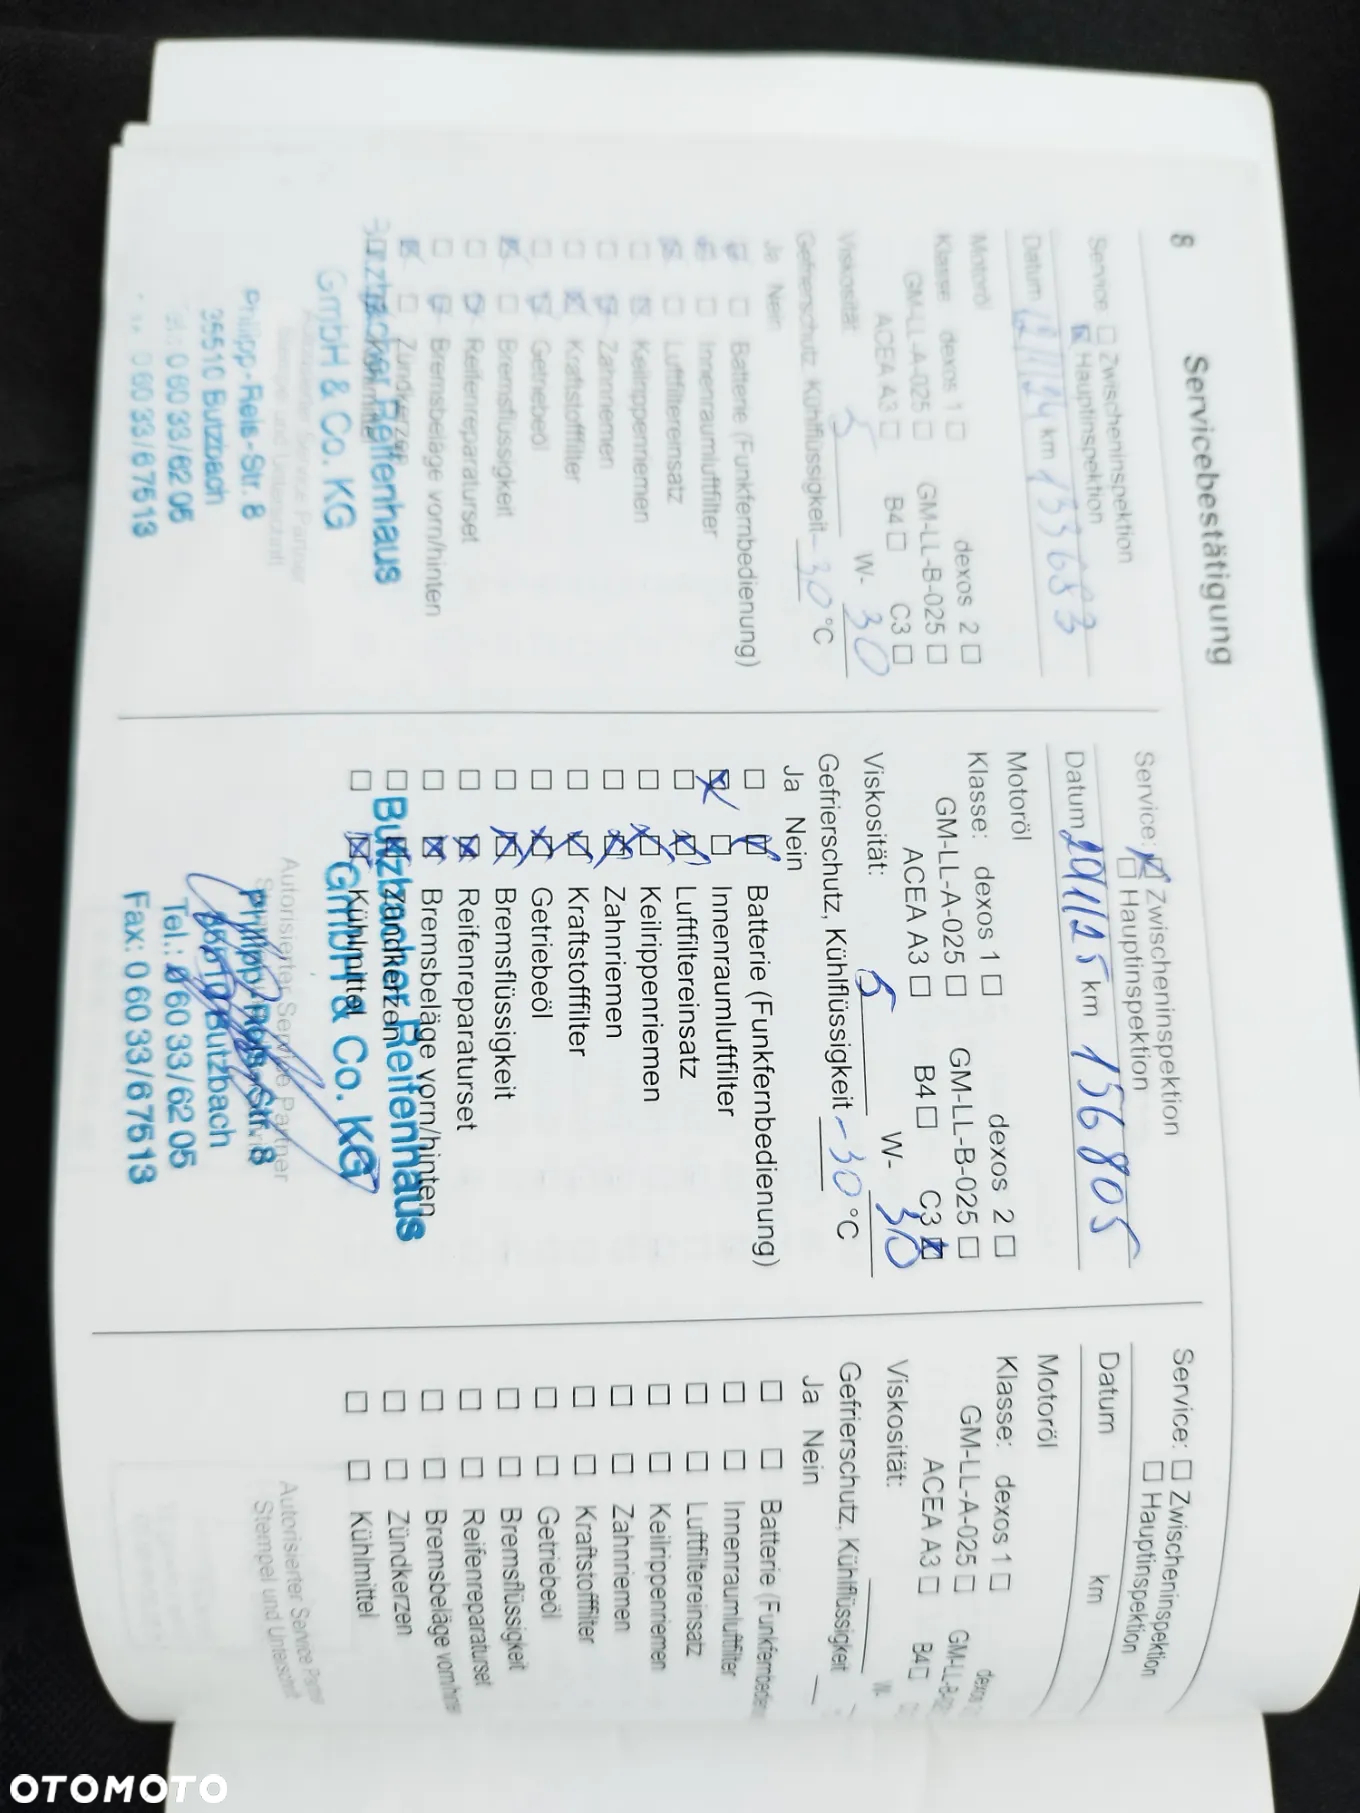 8
Servicebestätigung
Service: ☐ Zwischeninspektion
☒ Hauptinspektion
Datum 12/11/24 km 133683
Motoröl
Klasse dexos 1 ☐ dexos 2 ☐
GM-LL-A-025 ☐ GM-LL-B-025 ☐
ACEA A3 ☐ B4 ☐ C3 ☐
Viskosität: 5 W- 30
Gefrierschutz, Kühlflüssigkeit -30 °C
Ja Nein
☒ ☐ Batterie (Funkfernbedienung)
☒ ☐ Innenraumluftfilter
☒ ☐ Luftfiltereinsatz
☐ ☒ Keilrippenriemen
☐ ☒ Zahnriemen
☐ ☒ Kraftstofffilter
☐ ☒ Getriebeöl
☒ ☐ Bremsflüssigkeit
☐ ☒ Reifenreparaturset
☐ ☒ Bremsbeläge vorn/hinten
☒ ☐ Zündkerzen
Butzbacher Reifenhaus
GmbH & Co. KG
Philipp-Reis-Str. 8
35510 Butzbach
Tel.: 0 60 33/62 05
0 60 33/6 75 13
Service: ☒ Zwischeninspektion
☐ Hauptinspektion
Datum 29/1/25 km 156805
Motoröl
Klasse: dexos 1 ☐ dexos 2 ☐
GM-LL-A-025 ☐ GM-LL-B-025 ☐
ACEA A3 ☐ B4 ☐ C3 ☒
Viskosität: 5 W- 30
Gefrierschutz, Kühlflüssigkeit -30 °C
Ja Nein
☐ ☒ Batterie (Funkfernbedienung)
☒ ☐ Innenraumluftfilter
☐ ☒ Luftfiltereinsatz
☐ ☒ Keilrippenriemen
☐ ☒ Zahnriemen
☐ ☒ Kraftstofffilter
☐ ☒ Getriebeöl
☐ ☒ Bremsflüssigkeit
☐ ☒ Reifenreparaturset
☐ ☒ Bremsbeläge vorn/hinten
☐ ☒ Zündkerzen
☐ ☒ Kühlmittel
Butzbacher Reifenhaus
GmbH & Co. KG
Autorisierter Service Partner
Philipp-Reis-Str. 8
35510 Butzbach
Tel.: 0 60 33/62 05
Fax: 0 60 33/6 75 13
Service: ☐ Zwischeninspektion
☐ Hauptinspektion
Datum km
Motoröl
Klasse: dexos 1 ☐ dexos
GM-LL-A-025 ☐ GM-LL-B-
ACEA A3 ☐ B4 ☐
Viskosität: W-
Gefrierschutz, Kühlflüssigkeit
Ja Nein
☐ ☐ Batterie (Funkfernbedien
☐ ☐ Innenraumluftfilter
☐ ☐ Luftfiltereinsatz
☐ ☐ Keilrippenriemen
☐ ☐ Zahnriemen
☐ ☐ Kraftstofffilter
☐ ☐ Getriebeöl
☐ ☐ Bremsflüssigkeit
☐ ☐ Reifenreparaturset
☐ ☐ Bremsbeläge vorn/hinten
☐ ☐ Zündkerzen
☐ ☐ Kühlmittel
Autorisierter Service Partner
Stempel und Unterschrift
OTOMOTO